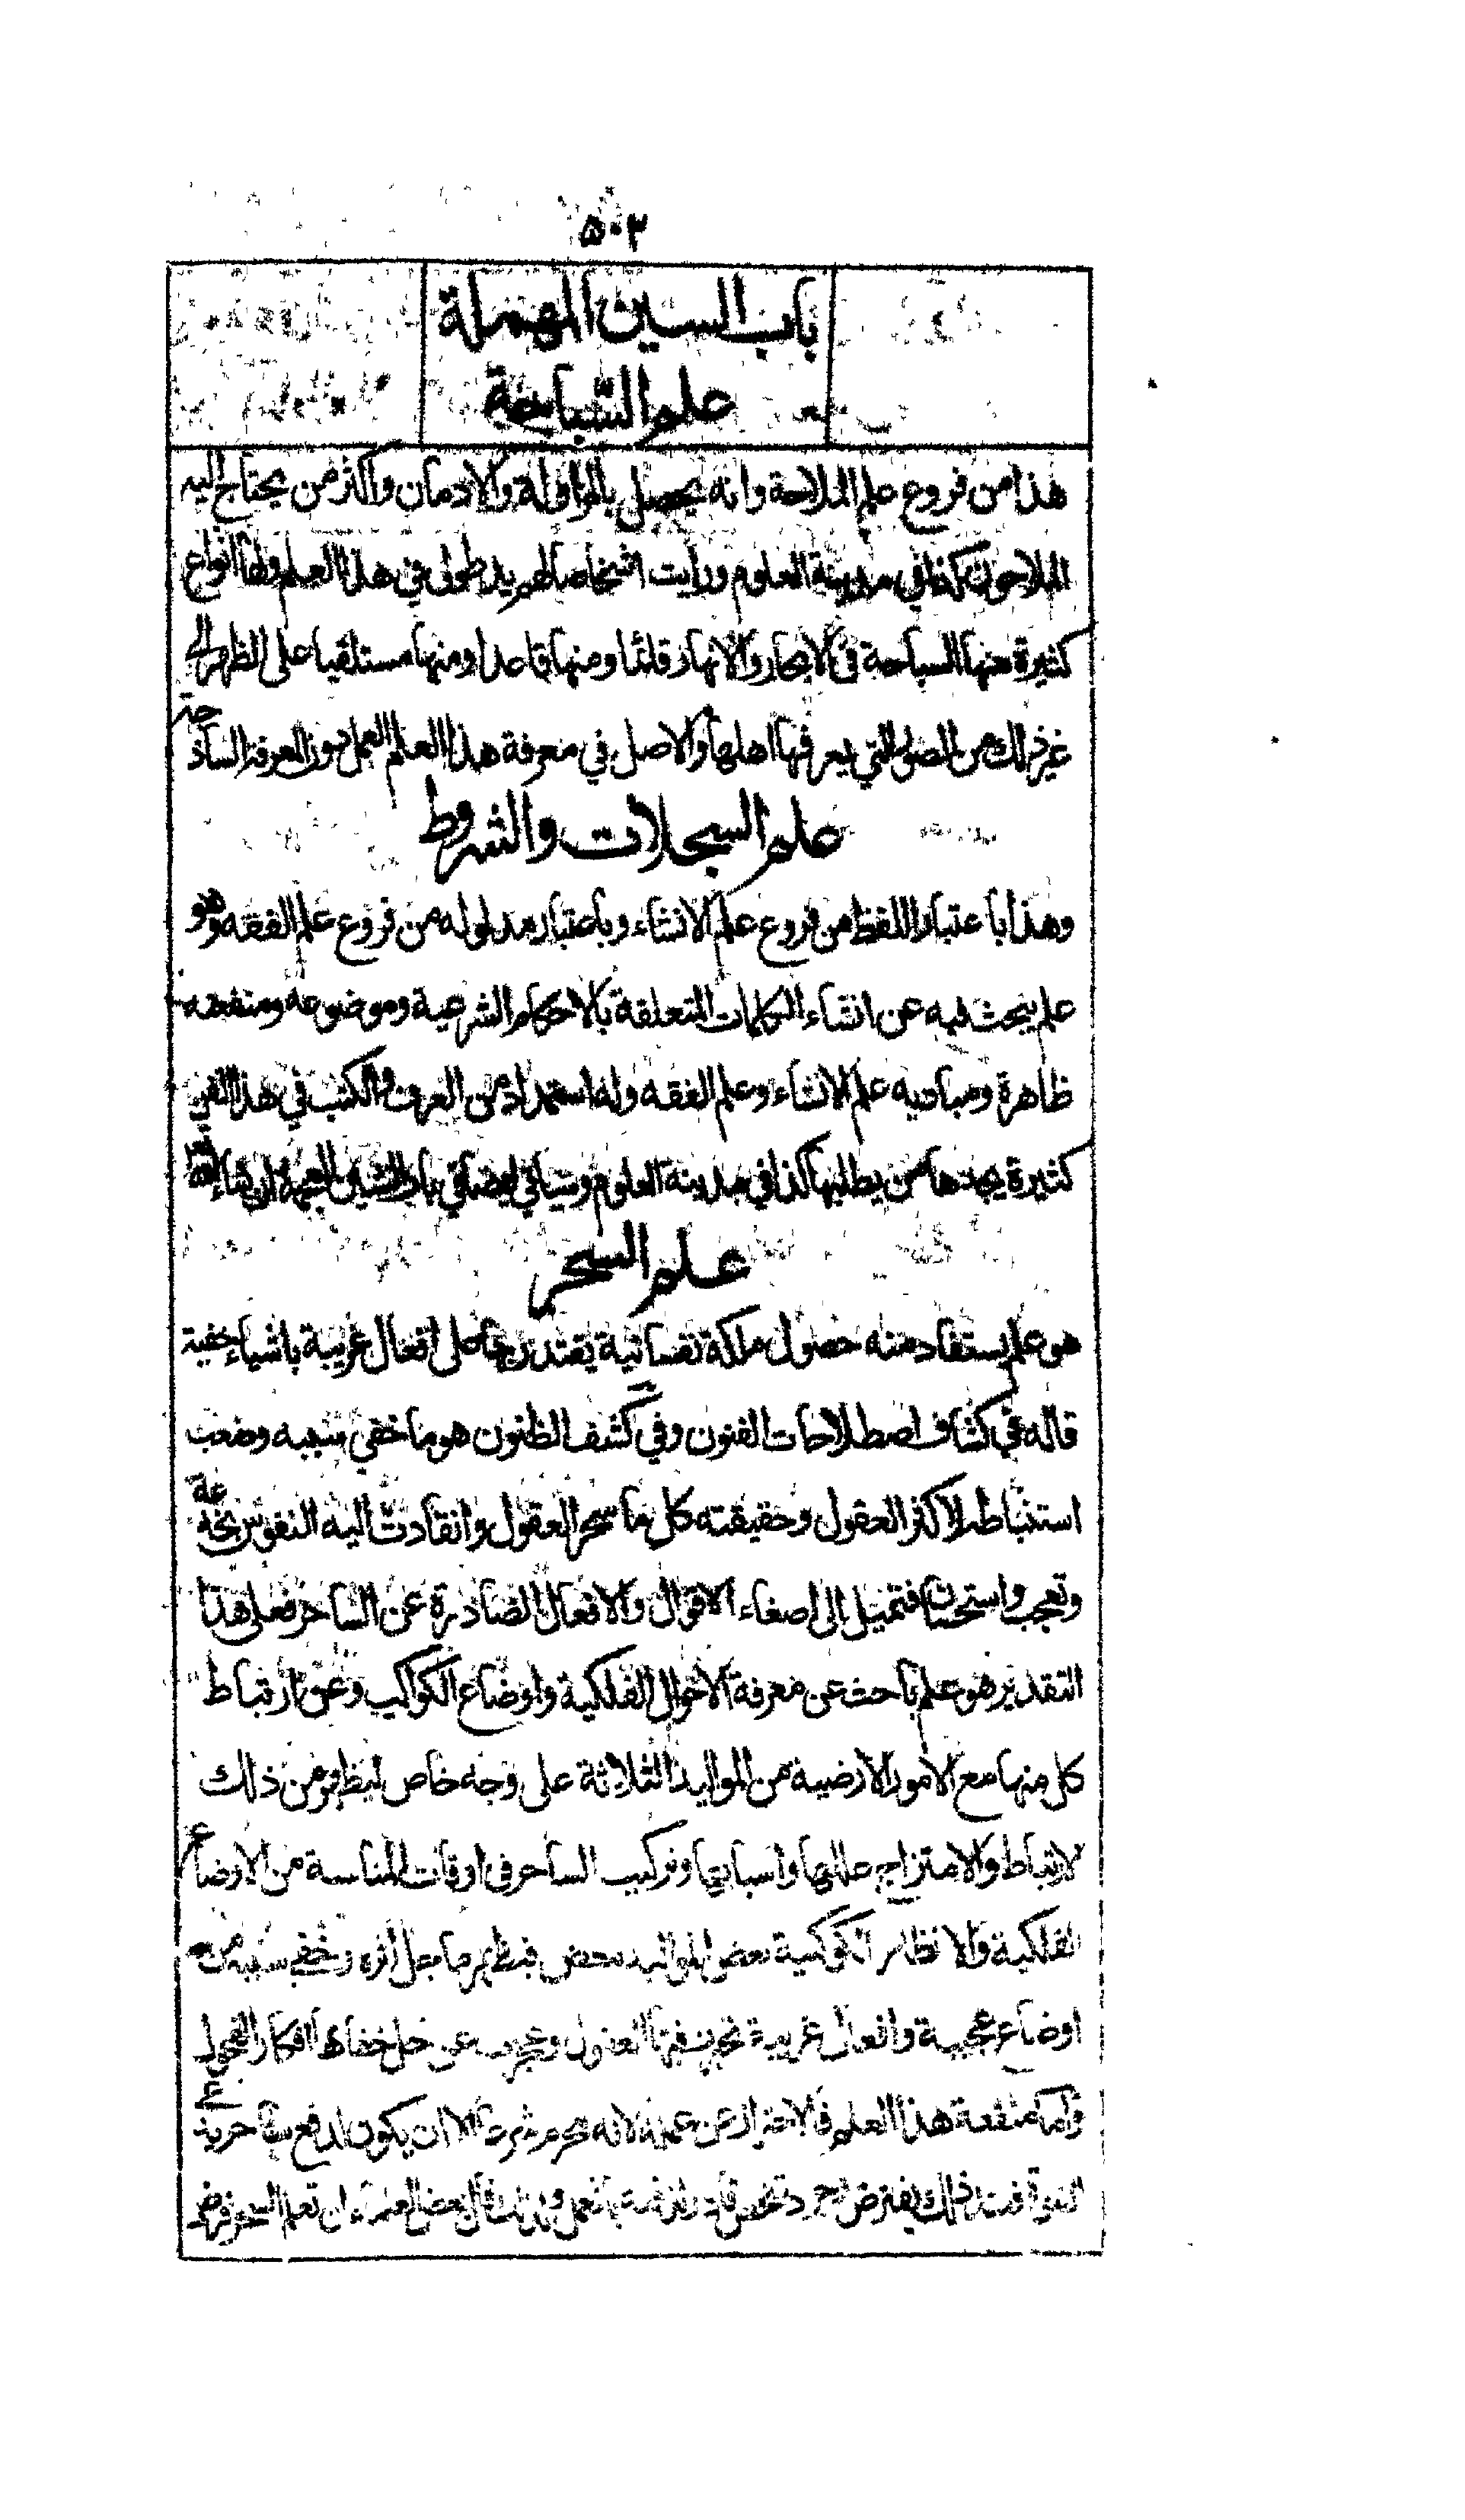 ۵۰۳
باب السين المهملة
علم السباحة
هذا من فروع علم الملاحة وانه يحصل بالمزاولة والادمان واكثر من يحتاج اليه
الملاحون كذا في مدينة العلوم ورايت اشخاصا لهم يد طولى في هذا العلم ولها انواع
كثيرة منها السباحة في الابحار والانهار قائما ومنها قاعدا ومنها مستلقيا على الظهر الى
غير ذلك من الصور التي يعرفها اهلها والاصل في معرفة هذا العلم العمل دون المعرفة الساذجة
علم السجلات والشروط
وهذا باعتبار اللفظ من فروع علم الانشاء وباعتبار مدلوله من فروع علم الفقه وهو
علم يبحث فيه عن انشاء الكلمات المتعلقة بالاحكام الشرعية وموضوعه ومنفعته
ظاهرة ومباديه علم الانشاء وعلم الفقه وله استمداد من العرف والكتب في هذا الفن
كثيرة يجدها من يطلبها كذا في مدينة العلوم وسياتي ايضا في باب الشين المعجمة ان شاء الله تعالى
علم السحر
هو علم يستفاد منه حصول ملكة نفسانية يقتدر بها على افعال غريبة باشياء خفية
قاله في كشاف اصطلاحات الفنون وفي كشف الظنون هو ما خفي سببه وصعب
استنباطه لاكثر العقول وحقيقته كل ما سحر العقول وانقادت اليه النفوس بخدعة
وتعجب واستحسان فتميل الى اصغاء الاقوال والافعال الصادرة عن الساحر فعلى هذا
التقدير هو علم باحث عن معرفة الاحوال الفلكية واوضاع الكواكب وعن ارتباط
كل منها مع الامور الارضية من المواليد الثلاثة على وجه خاص ليظهر من ذلك
الارتباط والامتزاج عللها واسبابها وتركيب الساحر في اوقات المناسبة من الاوضاع
الفلكية والانظار الكوكبية بعض المواليد ببعض فيظهر ما جل اثره وخفي سببه من
اوضاع عجيبة وافعال غريبة تحيرت فيها العقول وعجزت عن حل خفاها افكار الفحول
واما منفعة هذا العلم فالاحتراز عن عمله لانه محرم شرعا الا ان يكون لدفع ساحر يدعي
النبوة فعند ذلك يفترض وجود شخص قادر لدفعه بالعمل ولذلك قال بعض العلماء ان تعلم السحر فرض